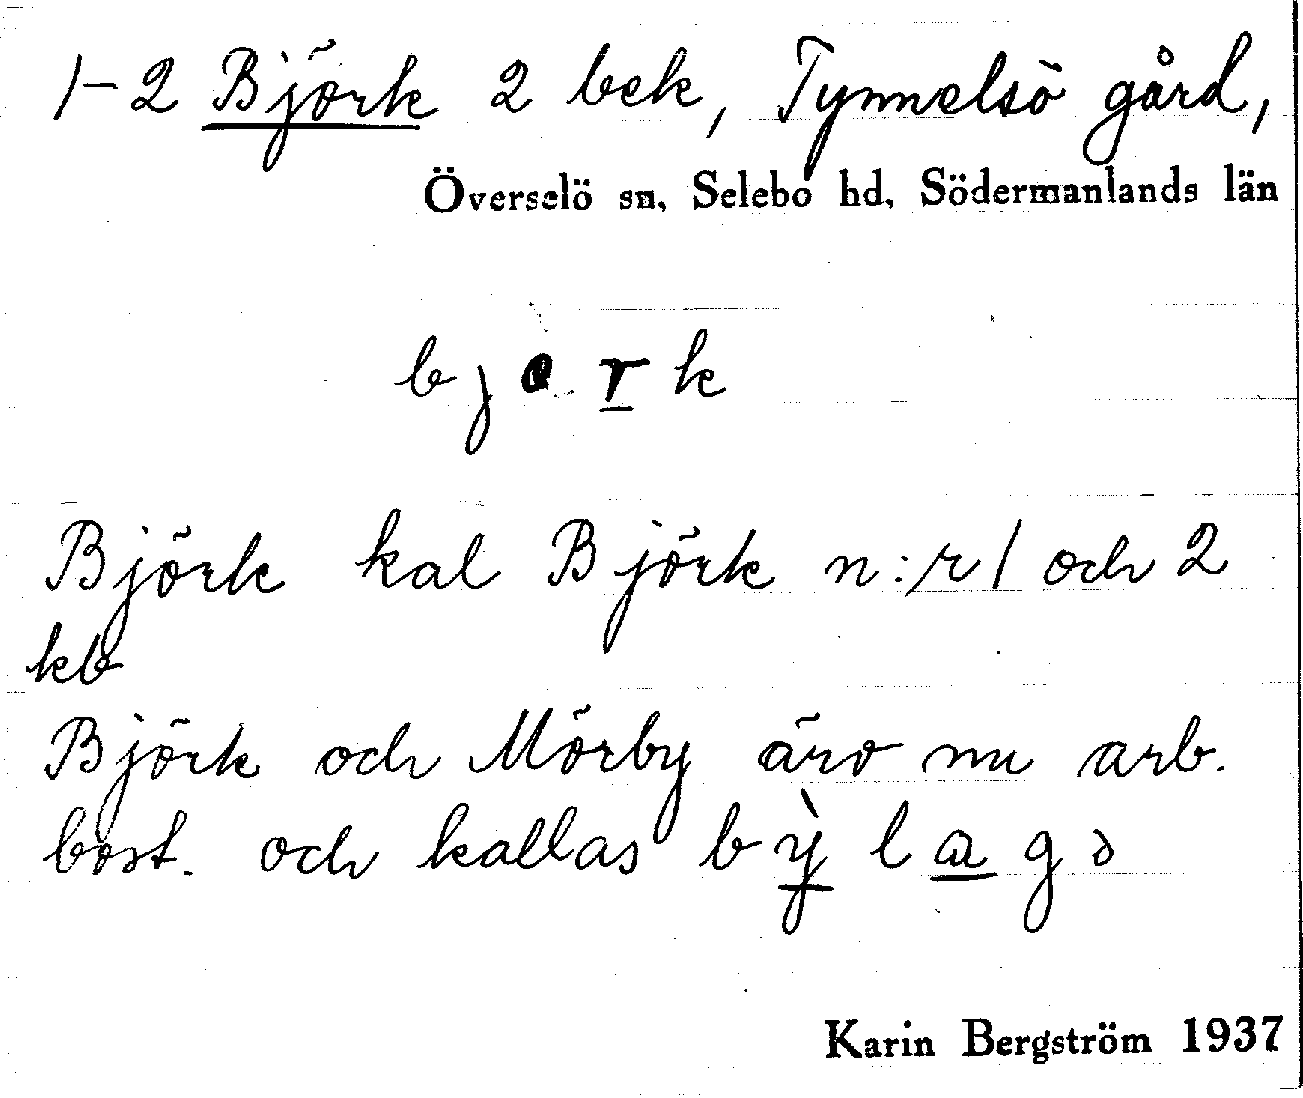 1-2 Björk 2 bek, Tynnelsö gård,
Överselö sn, Selebo hd, Södermanlands län
bjɵrk
Björk kal Björk n:r 1 och 2
kb
Björk och Mörby äro nu arb.
bost. och kallas bỳlagə
Karin Bergström 1937